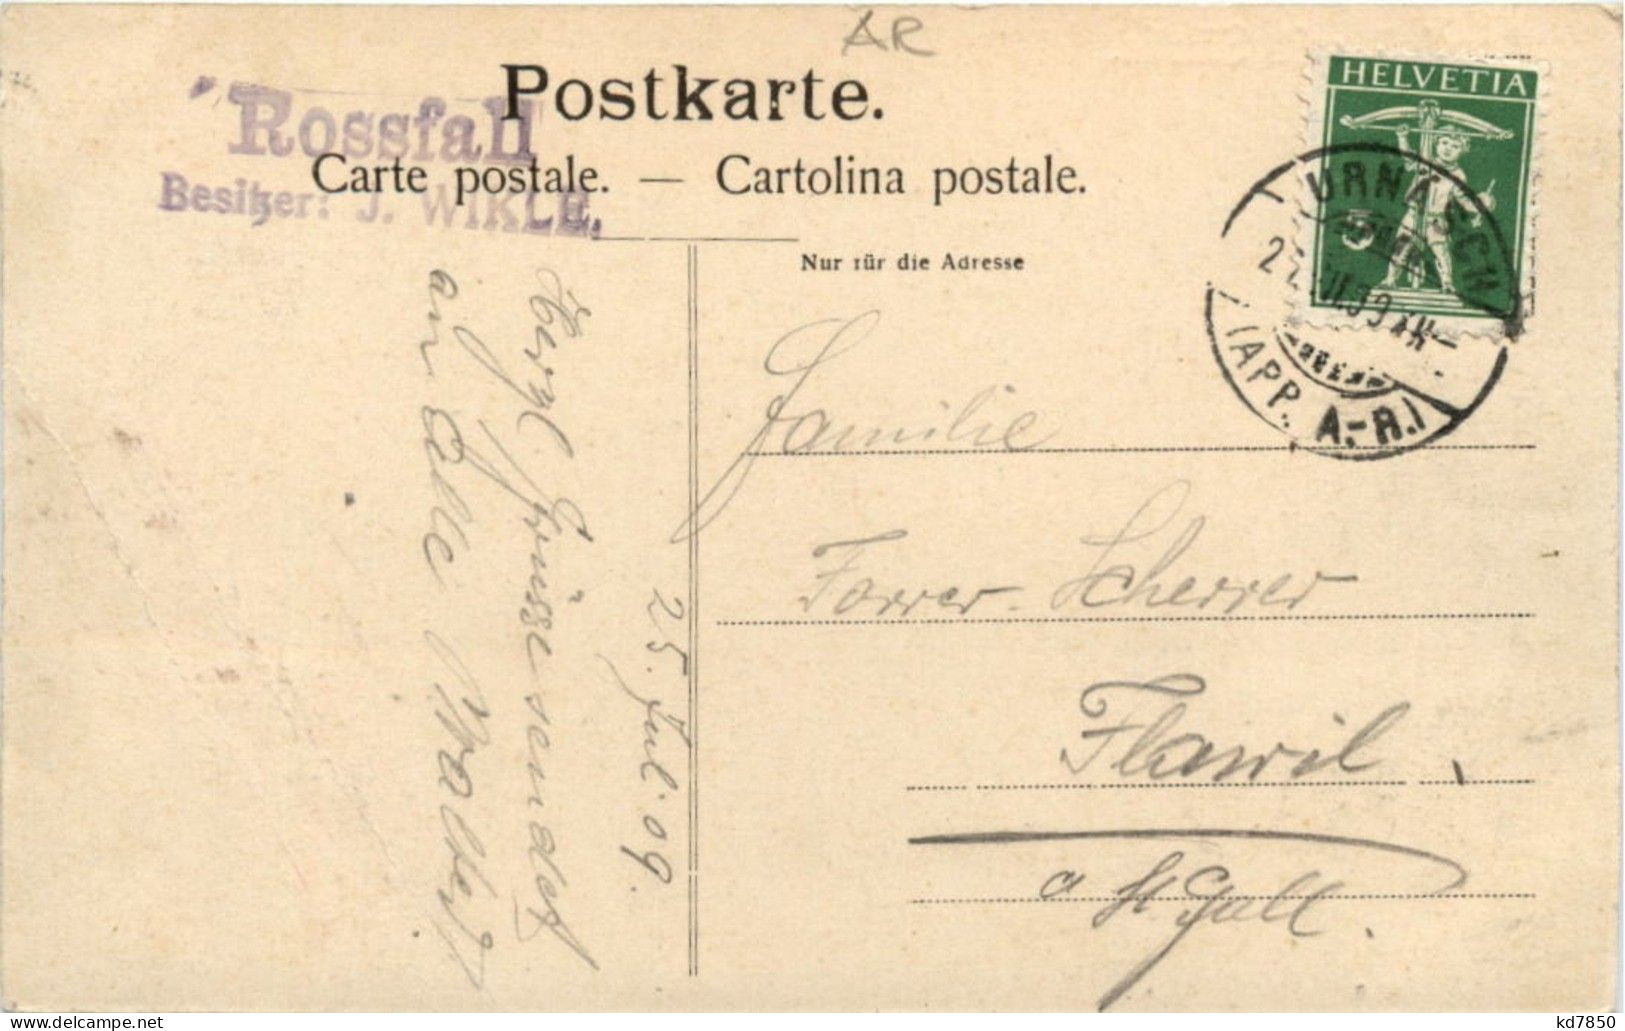 AR
Postkarte.
Rossfall
Carte postale. — Cartolina postale.
Besitzer: J. WIKLE.
Nur für die Adresse
HELVETIA
5
URNÄSCH
(APP. A.-R.)
Familie
Forrer-Scherrer
Flawil
St Gall.
25. Jul. 09.
Herzl Grüsse sendet
an Alle
kd7850